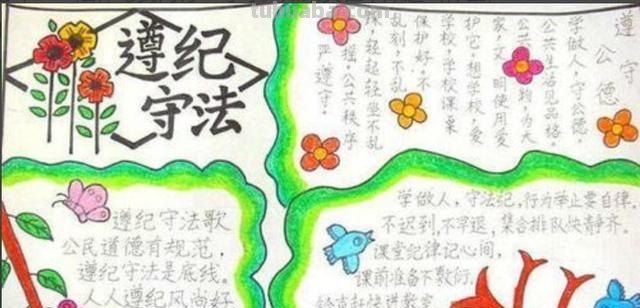 遵纪
守法
遵守公德
学做人,守公德,
公共生活见品格。
公共 物,为大
家,文明使用爱
护它。想学校,爱
学校,学校课桌
保护好。不
乱刻,不乱
轻起轻坐不乱
摇,公共秩序
严遵守。
遵纪守法歌
公民道德有规范,
遵纪守法是底线。
人人遵纪风尚好
学做人,守法纪,行为举止要自律。
不迟到,不早退,集合排队快静齐。
课堂纪律记心间,
课前准备不敷衍。